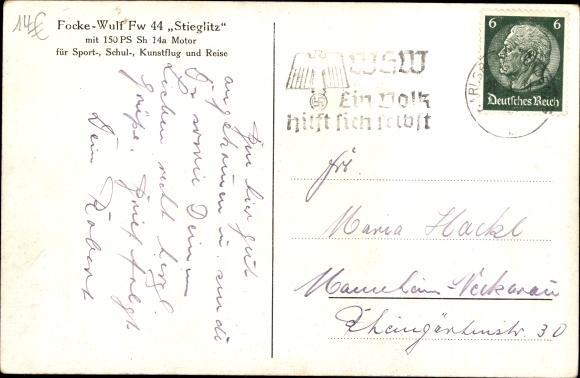 14€
Focke-Wulf Fw 44 „Stieglitz“
mit 150 PS Sh 14a Motor
für Sport-, Schul-, Kunstflug und Reise
Bin hier gut
angekommen u. sende
Dir sowie Deinen
Lieben recht herzl.
Grüße. Brief folgt
Dein Robert
WHW
Ein Volk
hilft sich selbst
6 6
Deutsches Reich
Frl.
Maria Hackl
Mannheim-Neckarau
Rheingärtenstr 30